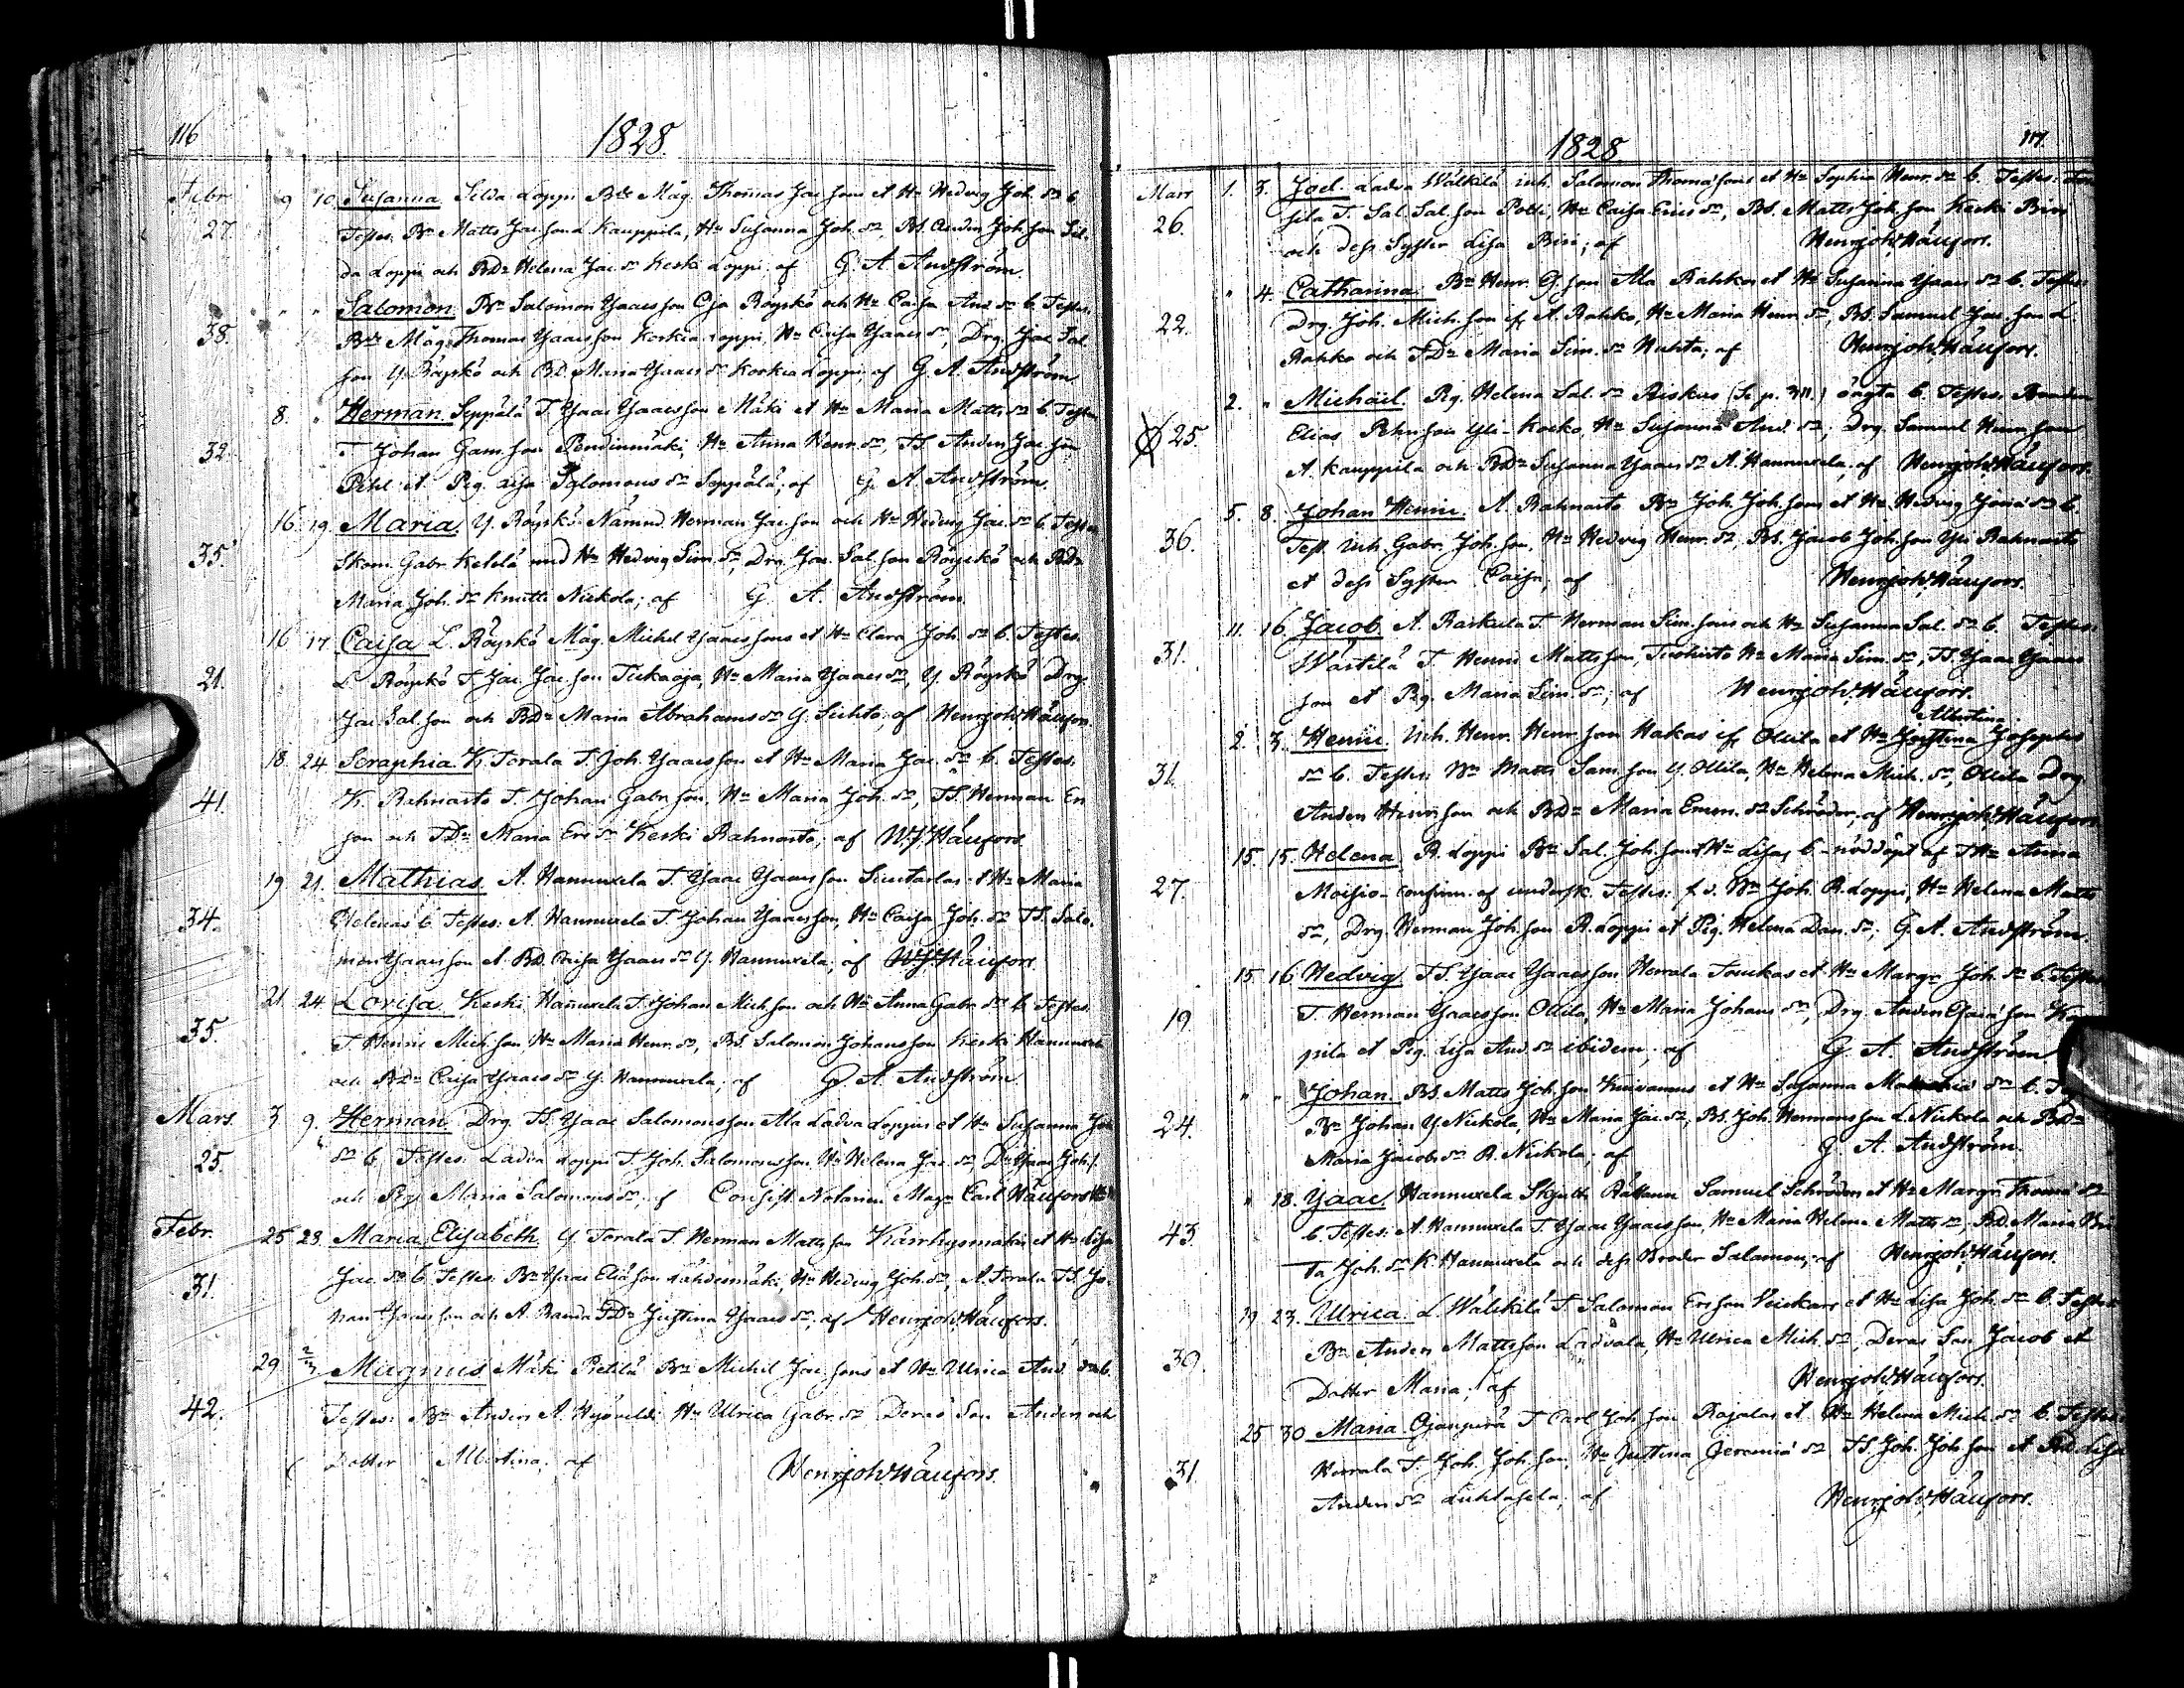 116
1828.
Febr. 9 10. Susanna Silda Loppi Måg. Thomas Jac. sons et Hu Hedvig Joh. dr b.
27. Testes: Bn Matts Jac. son L. Kauppila, Hu Susanna Joh. dr, BS. Anders Joh. son Sil-
da Loppi och BDr Helena Jac. dr Keski Loppi; af G. A. Andström.
" " Salomon. Bn Salomon Ysaacsson Oja Röyskö och Hu Caisa And. dr b. Testes:
38. Måg Thomas Ysaacsson Korkia Loppi, Hu Caisa Ysaacs dr, Drg. Jac. Sal.
son Y. Röyskö och BD. Maria Ysaacs dr Korkia Loppi; af G. A. Andström
8. " Herman. Seppälä T. Ysaac Ysaacsson Mäki et Hu Maria Matts dr b. Testes
32. T. Johan Gam. son Hu Anna Henr. dr, TS. Anders Jac. son
et Pig. Caisa Salomons dr Seppälä; af G. A. Andström.
16. 19. Maria. Y. Röyskö Nämnd. Herman Jac. son och Hu Hedvig Jac. dr b. Testes
35. Skom. Gabr. Kehlä med Hu Hedvig Sim. dr, Drg. Jac. Sal. son Röyskö och BDr
Maria Joh. dr Knutti Nickola; af G. A. Andström.
16 17 Caisa L. Röyskö Måg. Michel Ysaacsons et Hu Clara Joh. dr b. Testes.
21. L. Röyskö T. Jac. Jac. son Tickaoja, Hu Maria Ysaacs dr, Y. Röyskö Drg.
Jac. Sal. son och BDr Maria Abrahams dr Y. Suhto; af Henrjoh. Häufors.
18. 24 Seraphia. K. Torala T. Joh. Ysaacsson et Hu Maria Jac. dr b. Testes.
41. K. Rahnasto T. Johan Gabr. son, Hu Maria Joh. dr, TS. Herman Er.
son och TDr Maria Ers dr Keski Rahnasto; af H. J. Häufors
19 21. Mathias. A. Hannuxela T. Ysaac Ysaacsson et Hu Maria
34. Helenas b. Testes: A. Hannuxela T. Johan Ysaacsson, Hu Caisa Joh. dr TS. Salo-
mon Ysaacsson et BD. Caisa Ysaacs dr Y. Hannuxela; af H. J. Häufors
21. 24 Lovisa. Keski Hannuxela T. Johan Mich. son och Hu Anna Gabr. dr b. Testes.
35. T. Henric Mich. son, Hu Maria Henr. dr, BS. Salomon Johansson Keski Hannuxela
och BDr Caisa Ysaacs dr Y. Hannuxela; af G. A. Andström.
Mars. 3 9. Herman. Drg. TS. Ysaac Salomonsson Ala Ladva Loppis et Hu Susanna
25. dr b. Testes: Ladva Loppi T. Joh. Salomonsson, Hu Helena Jac. dr
och Pig. Maria Salomons dr; af Consist. Notarien Magr Carl Häufors
Febr. 25 28. Maria Elisabeth. Y. Torala T. Herman Matts son et Hu Lisa
31. Jac. dr b. Testes: Bn Ysaac Eliæson Lähdenmäki, Hu Hedvig Joh. dr, A. Torala TS. Jo-
han Ysaacsson och A. TDr Justina Ysaacs dr; af Henrjoh. Häufors.
29. 2/3 Magnus Mäki Pietilä Bn Michel Jac. sons et Hu Ulrica And. dr b.
42. Testes: Bn Anders A. Hu Ulrica Gabr. dr Deras Son Anders och
Dotter Albertina; af Henrjoh. Häufors.
1828 117.
Mars 1. 3. Joel. Ladva Wälkilä inh. Salomon Thomæsons et Hu Sophia Henr. dr b. Testes:
26. T. Sal. Sal. son Potti, Hu Caisa Erics dr, BS. Matts Joh. son Keski
och dess Syster Lisa; af Henrjoh. Häufors.
" 4. Catharina. Bn Henr. G. son Ala Rahkos et Hu Susanna Ysaacs dr b. Testes:
22. Drg. Joh. Mich. son A. Rahko, Hu Maria Henr. dr, BS. Samuel Jac. son L.
Rahko och TDr Maria Sim. dr Huhta; af Henrjoh. Häufors.
2. " Michäel. Pig. Helena Sal. dr Riskus (Se p. 311.) oägta b. Testes:
25. Elias Yli-Kocko, Hu Susanna And. dr, Drg. Samuel Henr. son
A. Kauppila och BDr Susanna Ysaacs dr A. Hannuxela; af Henrjoh. Häufors.
5. 8. Johan Henric. A. Rahnasto Bn Joh. Joh. sons et Hu Hedvig Jonæ dr b.
36. Test. inh. Gabr. Joh. son, Hu Hedvig Henr. dr, BS. Jacob Joh. son Yli Rahnasto
et dess Syster Caisa; af Henrjoh. Häufors.
11. 16. Jacob. A. Raiskula T. Herman Sim. sons och Hu Susanna Sal. dr b. Testes:
31. Wästilä T. Henric Matts son, Hu Maria Sim. dr, TS. Ysaac Ysaacs
son et Pig. Maria Sim. dr; af Henrjoh. Häufors.
Albertina
2. 3. Henric. Inh. Henr. Henr. son Hakas Ollila et Hu Justina Josephs
31. dr b. Testes: Bn Matts Sam. son Y. Ollila, Hu Helena Mich. dr, Ollila Drg.
Anders Henr. son och BDr Maria Eman. dr Schröder; af Henrjoh. Häufors.
15 15. Helena. R. Loppi Bn Sal. Joh. son et Hu Lisas b. nöddöpt af Hu Anna
27. Moisio confirm. af undersk. Testes: f. d. Bn Joh. R. Loppi, Hu Helena Matts
dr, Drg. Herman Joh. son R. Loppi et Pig. Helena Dan. dr; G. A. Andström.
15 16 Hedvig. TS. Ysaac Ysaacsson Herrala et Hu Margr. Joh. dr b. Testes
19. T. Herman Ysaacsson Ollila, Hu Maria Johans dr, Drg. Anders Esaiæson
pila et Pig. Lisa And. dr ibidem; af G. A. Andström
" " Johan. BS. Matts Joh. son et Hu Susanna dr b.
24. Bn Johan Y. Nickola, Hu Maria Jac. dr, BS. Joh. Hermansson L. Nickola och BDr
Maria Jacobs dr R. Nickola; af G. A. Andström.
" 18. Ysaac. Hannuxela Samuel Schröder et Hu Margr. Thomæ dr
43. b. Testes: A. Hannuxela T. Ysaac Ysaacsson, Hu Maria Helena Matts dr, BD. Maria
Joh. dr K. Hannuxela och dess Broder Salomon; af Henrjoh. Häufors.
19 23. Ulrica. L. Wälikilä T. Salomon Ersson et Hu Lisa Joh. dr b. Testes
30. Bn Anders Mattsson Ladvala, Hu Ulrica Mich. dr, Deras Son Jacob et
Dotter Maria; af Henrjoh. Häufors.
25 30 Maria. Ojanperä T. Carl Joh. son Rajalas et Hu Helena Mich. dr b. Testes:
31. Herrala T. Joh. Joh. son, Hu Justina Jeremiæ dr TS. Joh. Joh. son et BD. Lisa
Anders dr; af Henrjoh. Häufors.